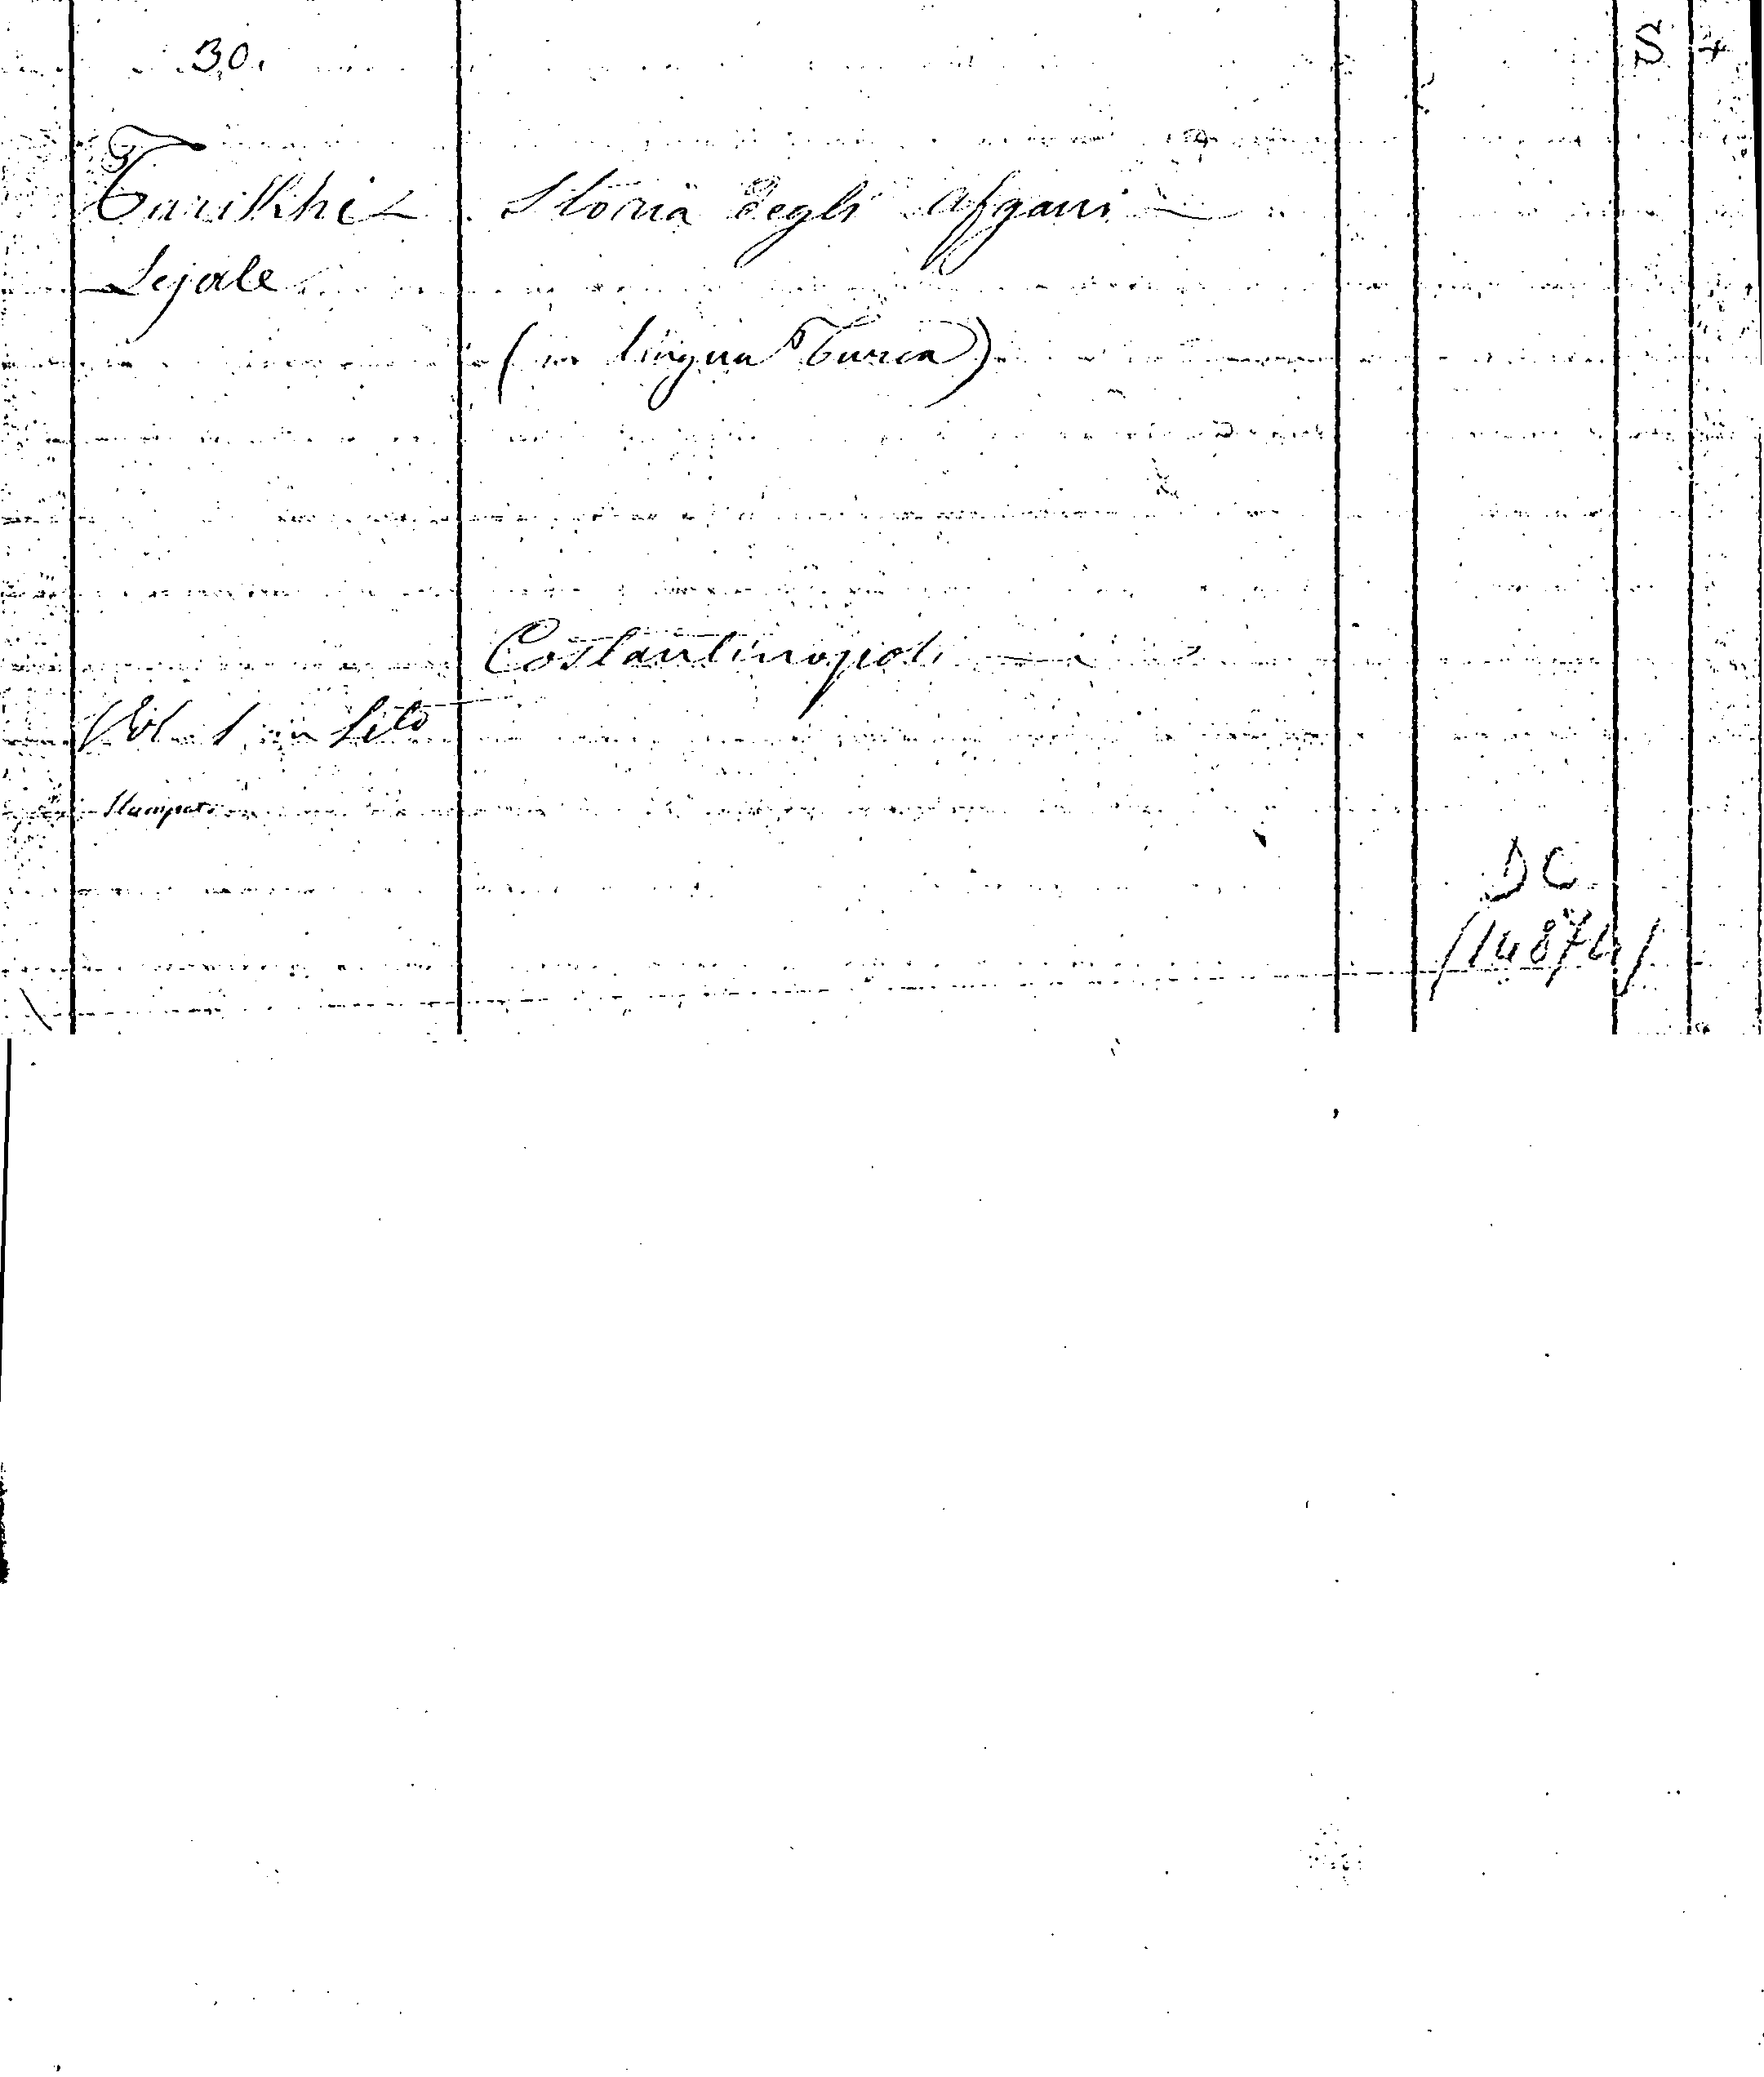 30.
S +
Tarikhi Storia degli Afgani
Sejale
(in lingua Turca)
Costantinopoli
Vol. 1 in
Stampato
DC
/14874/